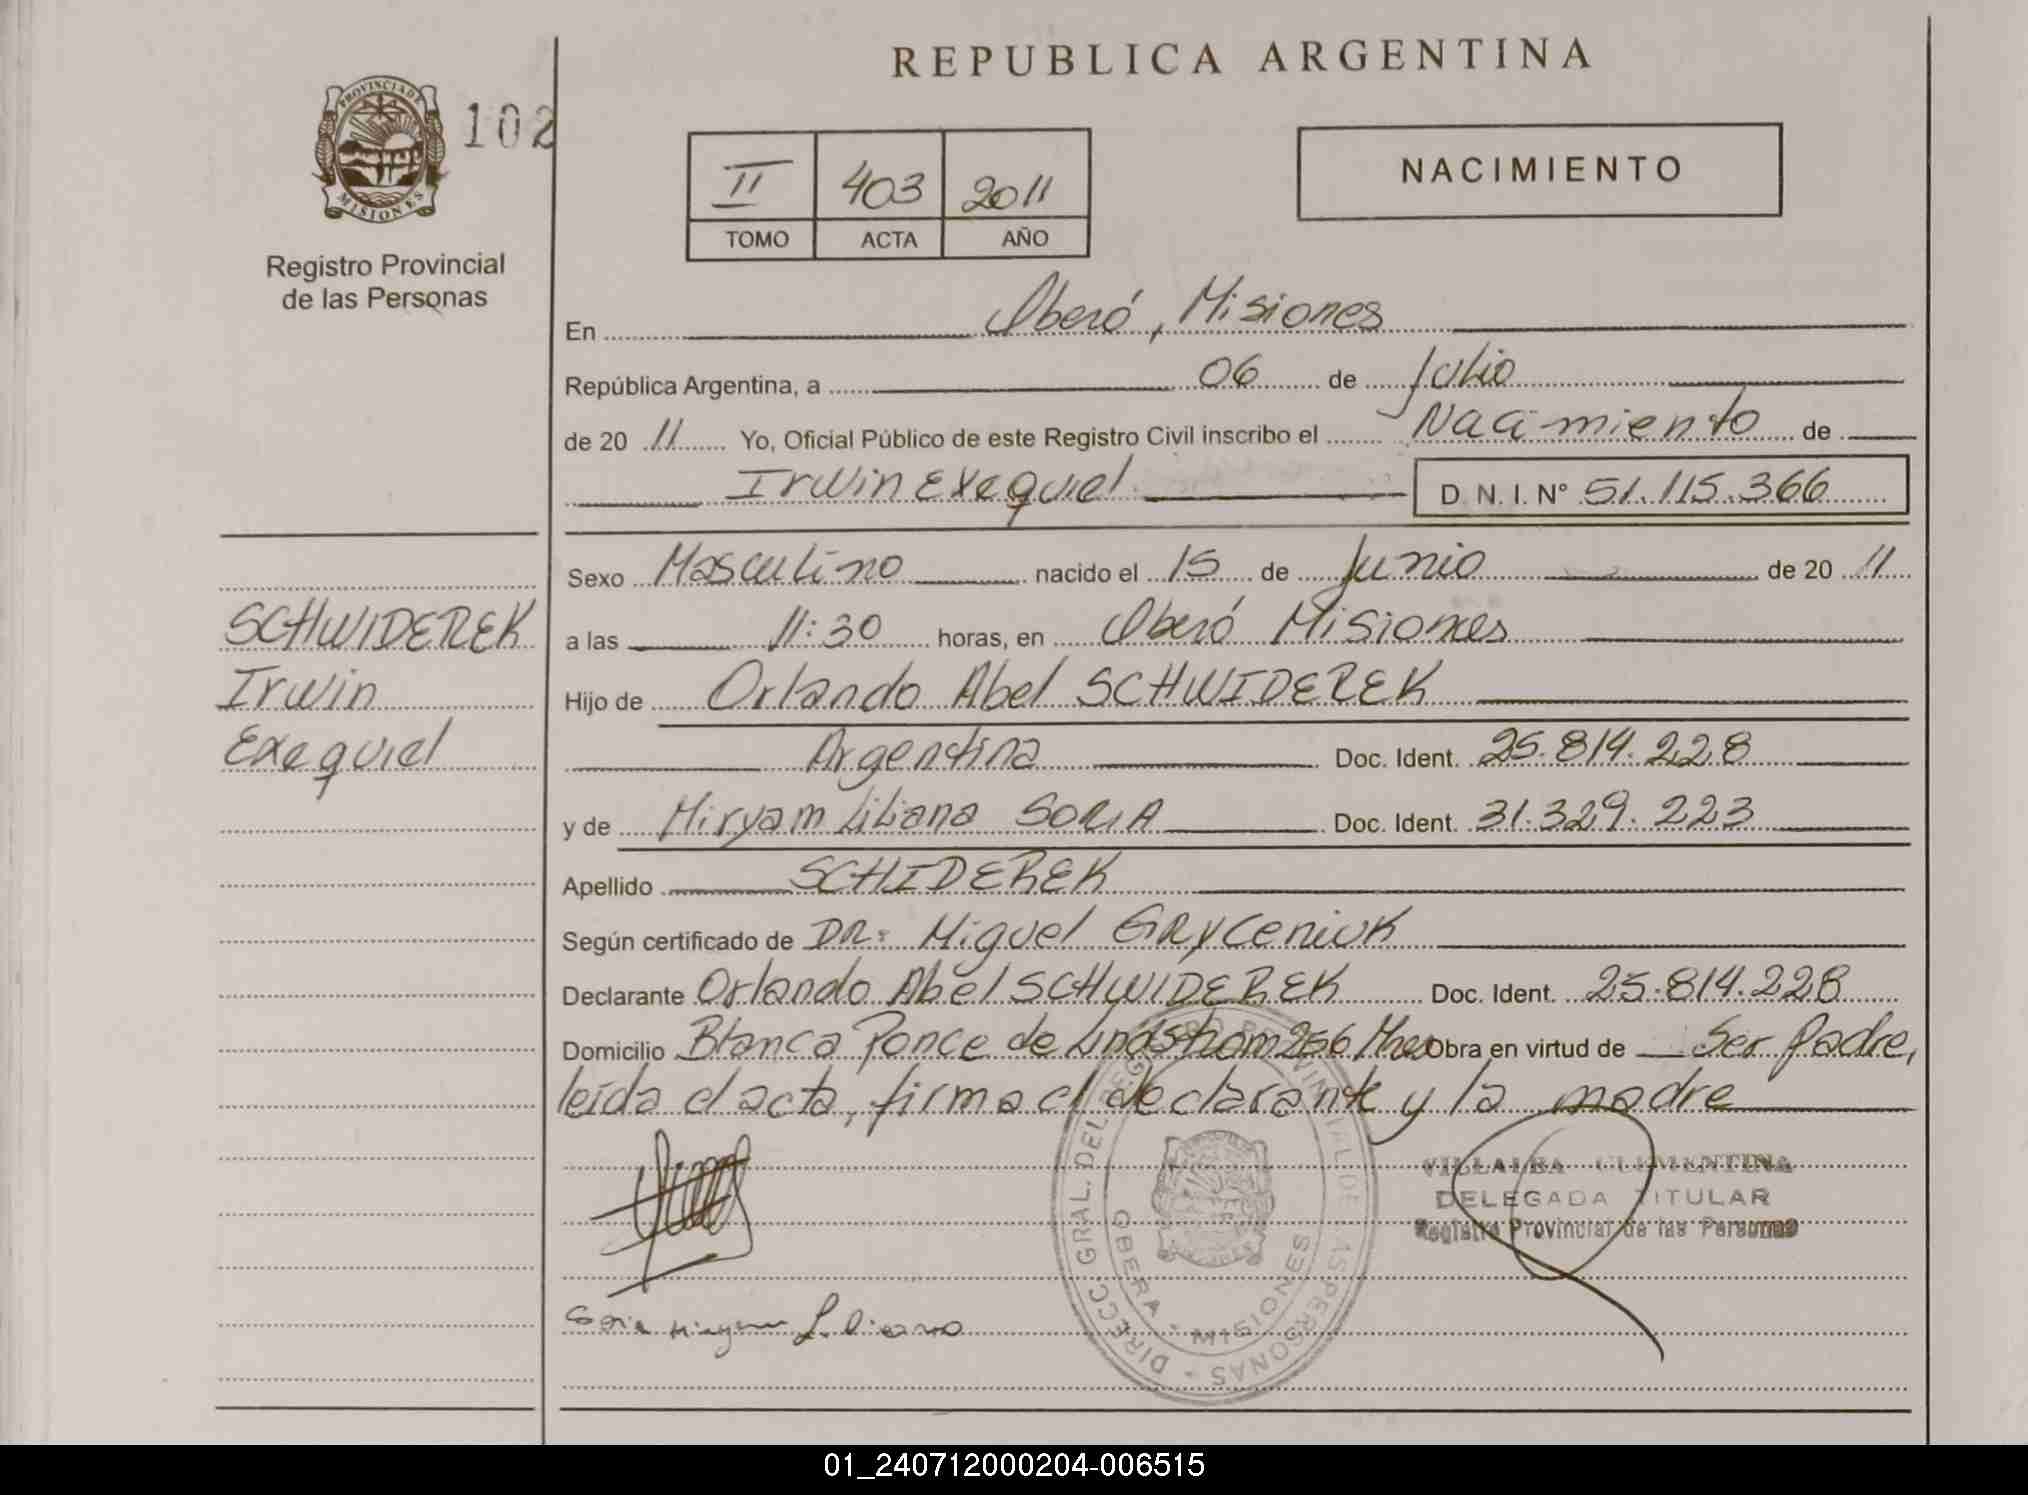 REPUBLICA ARGENTINA
PROVINCIA DE
MISIONES
102
Registro Provincial
de las Personas
II 403 2011
TOMO ACTA AÑO
NACIMIENTO
En Oberá, Misiones
República Argentina, a 06 de Julio
de 20 11 Yo, Oficial Público de este Registro Civil inscribo el Nacimiento de
Irwin Exequiel D N. I. N° 51.115.366
SCHWIDEREK
Irwin
Exequiel
Sexo Masculino nacido el 15 de Junio de 20 11
a las 11:30 horas, en Oberá Misiones
Hijo de Orlando Abel SCHWIDEREK
Argentina Doc. Ident. 25.814.228
y de Miryam Liliana SORIA Doc. Ident. 31.329.223
Apellido SCHIDEREK
Según certificado de DR. Miguel GRYCeniuK
Declarante Orlando Abel SCHWIDEREK Doc. Ident. 25.814.228
Domicilio Blanca Ponce de Lindstrom 256 Obra en virtud de Ser Padre,
leída el acta, firma el declarante y la madre
VILLALBA CLEMENTINA
DELEGADA TITULAR
Registro Provincial de las Personas
Soria Miryam Liliana
DIRECC GRAL. DEL REGISTRO PROVINCIAL DE LAS PERSONAS -
OBERA - MISIONES
01_240712000204-006515